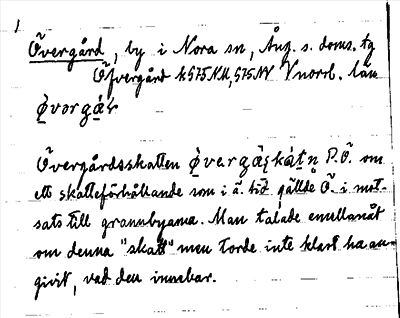 1
Övergård, by i Nora sn, Ång. s. doms. tg
Öfvergård k575NU, 575NV Vnorrl. län
Övergårdsskatten P.Ö. om
ett skatteförhållande som i ä. tid gällde Ö. i mot-
sats till grannbyarna. Man talade emellanåt
om denna "skatt" men torde inte klart ha an-
givit, vad den innebar.